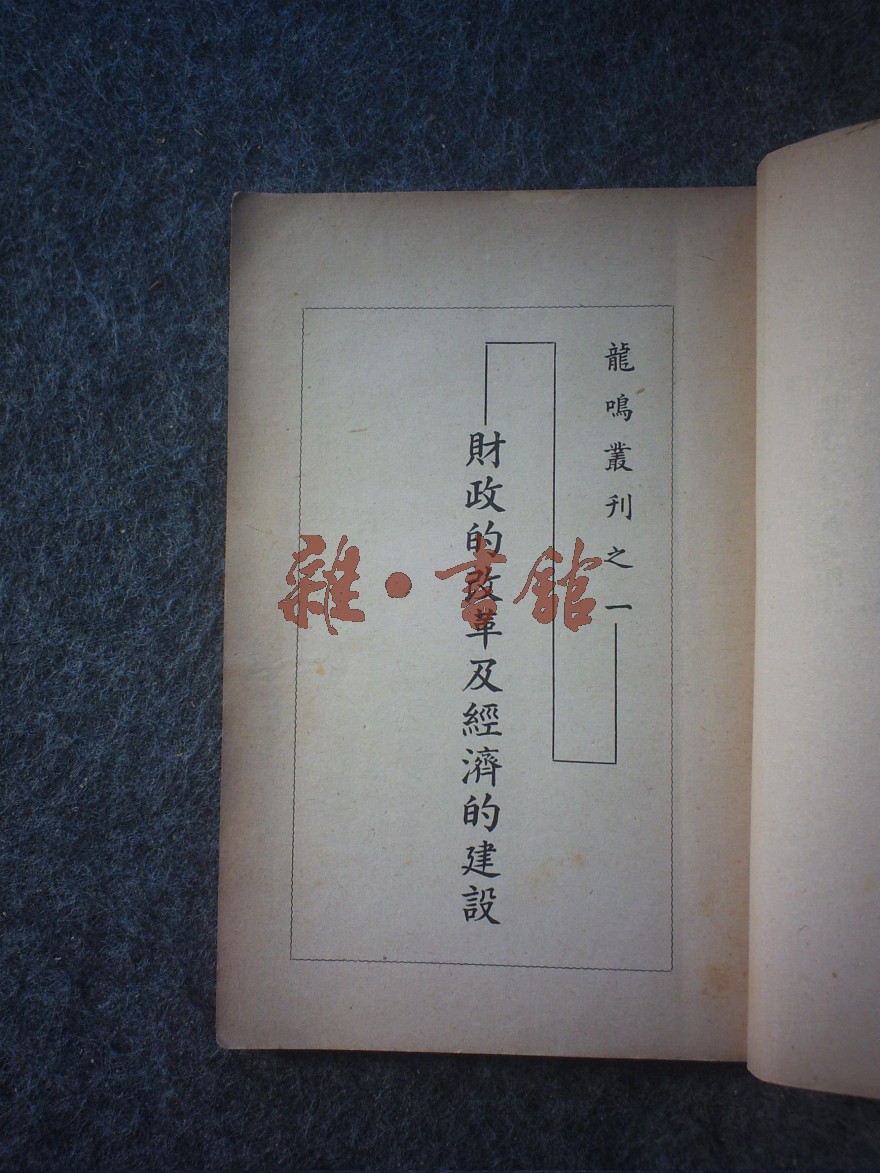 龍鳴叢刊之一
財政的改革及經濟的建設
雜·書館